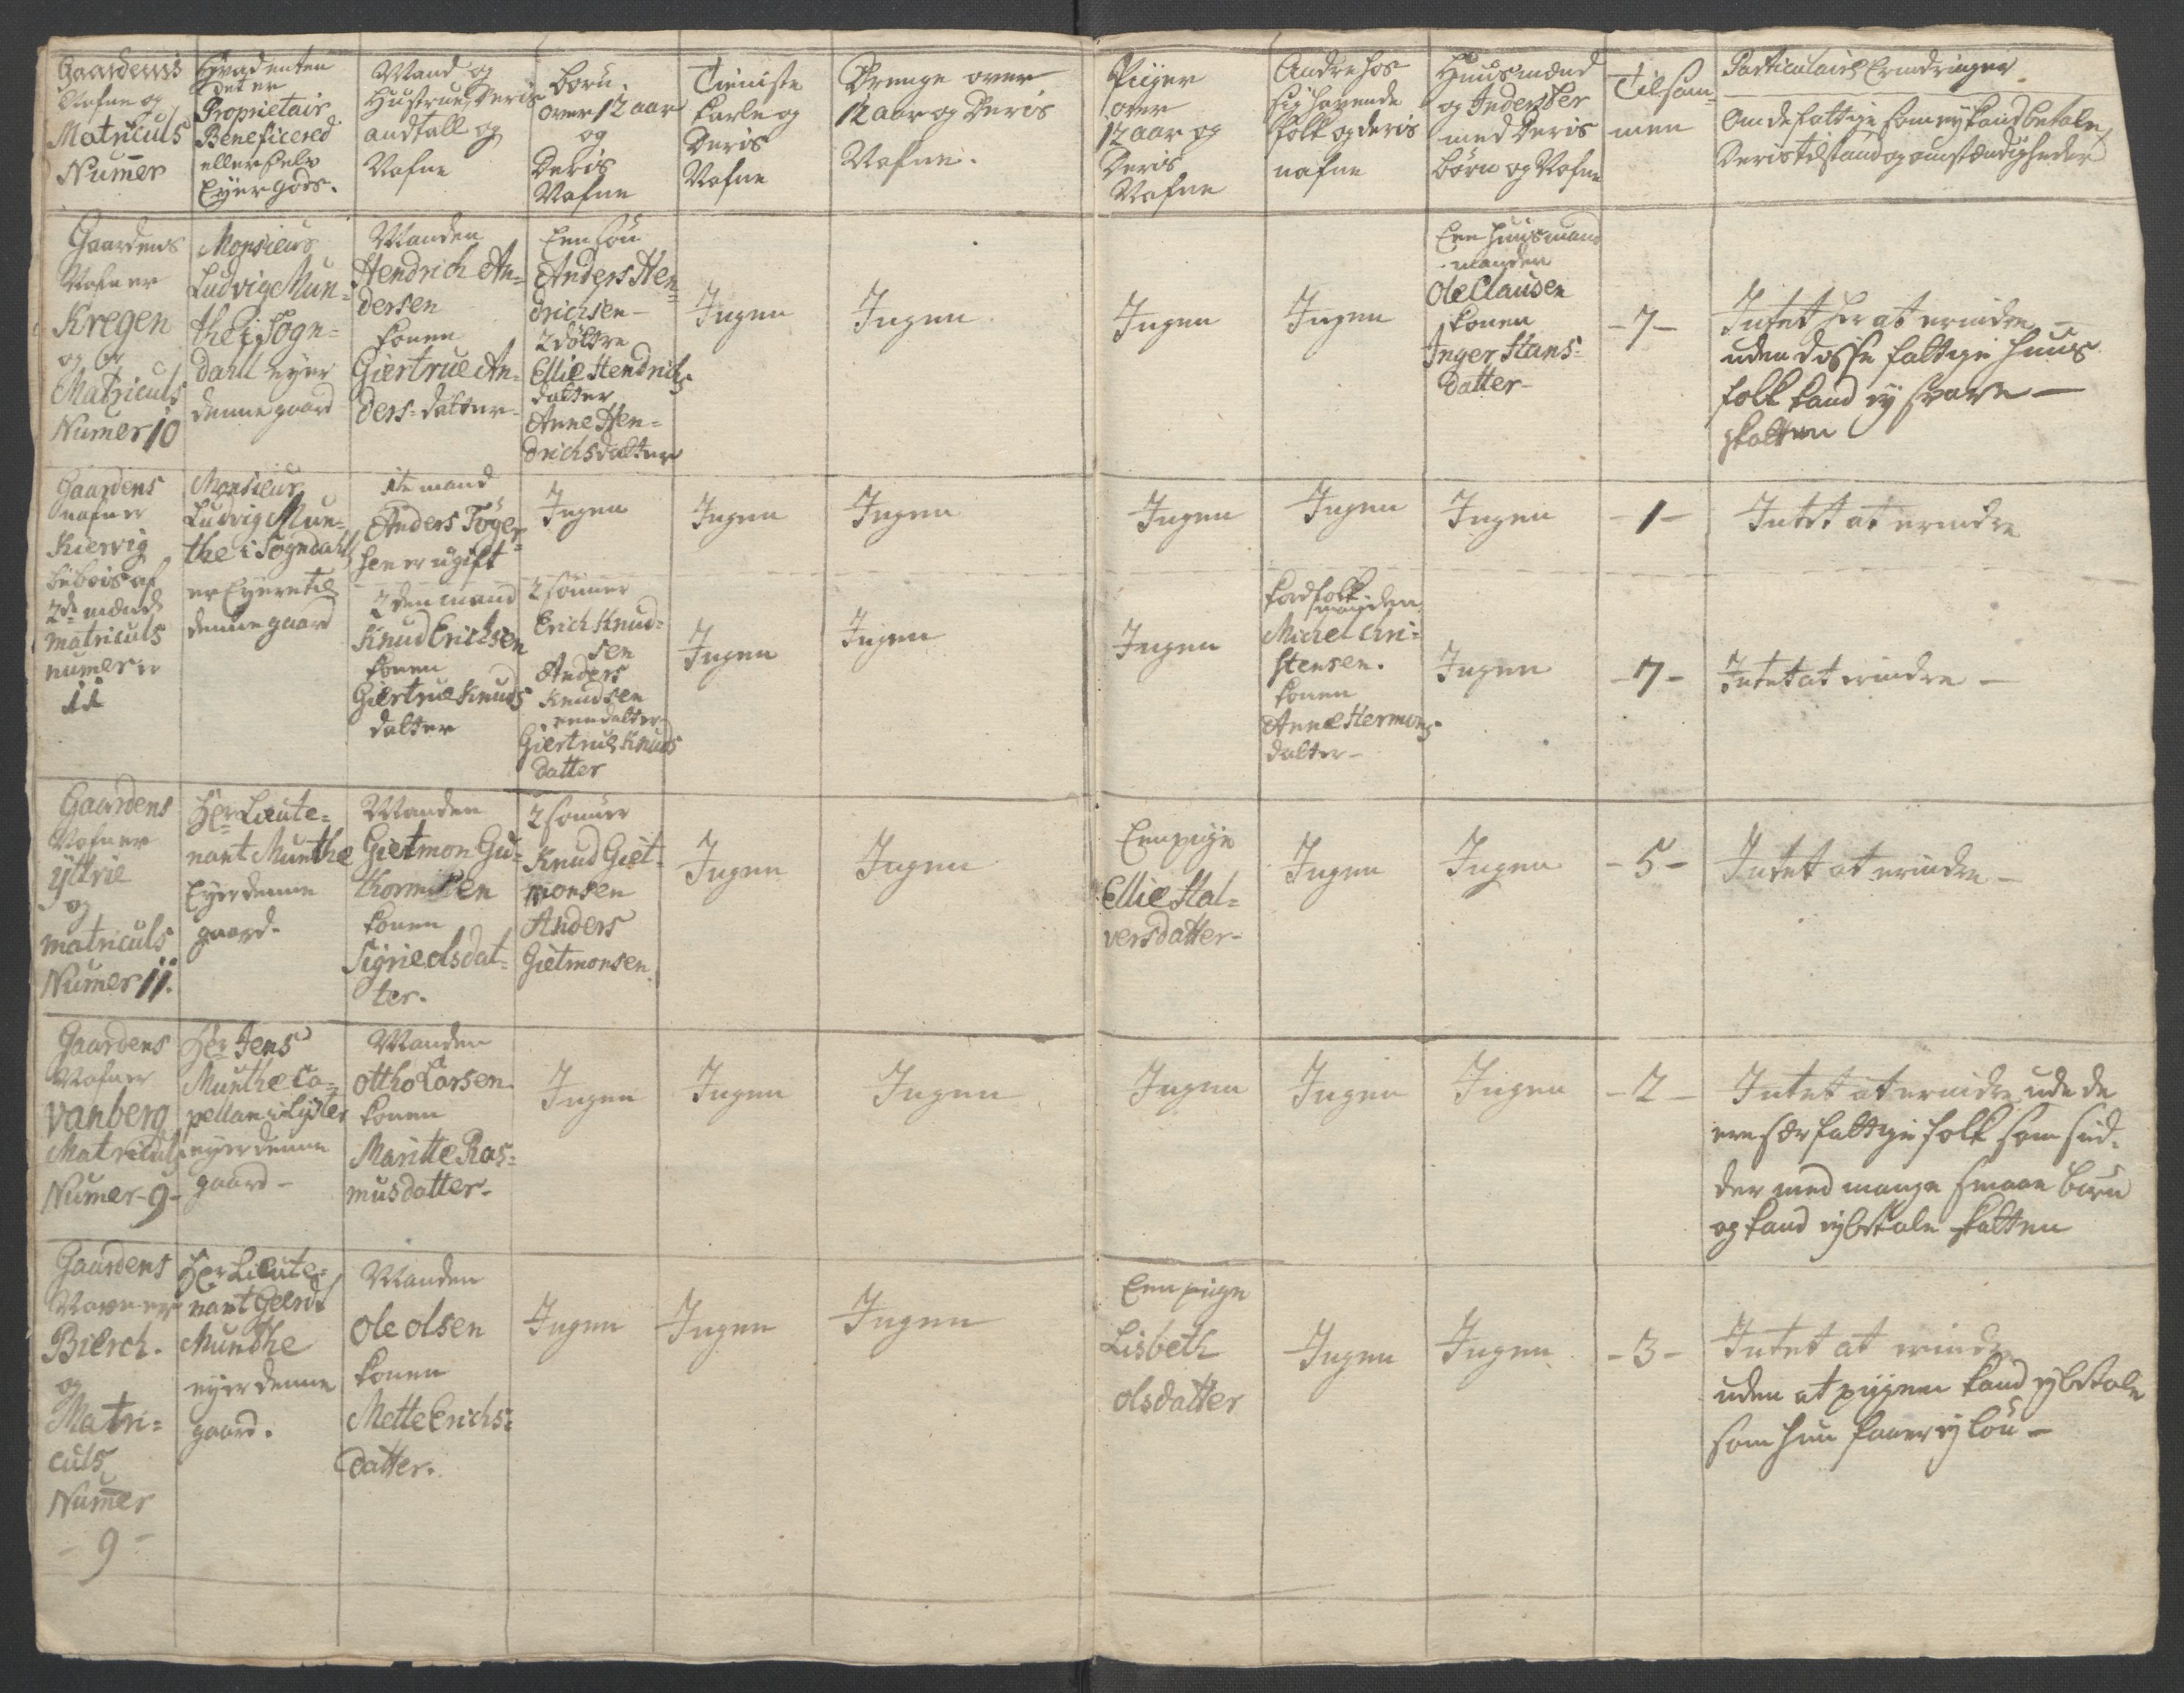 Gaardens
Nafne og
Matriculs
Numer
Hvad enten
det er
Proprietair
Beneficered
eller selv
Eyer gods.
Mand og
Hustrue, Deris
andtall og
Nafne
børn
over 12 aar
og
Deris
Nafne
Tieniste
karle og
Deris
Nafne
Drenge over
12 aar og Deris
Nafne.
Piiger
over
12 aar og
Deris
Nafne
Andre hos
sig havende
folk og deris
nafne
Huusmænd
og Inderster
med Deris
børn og Nafne
Tilsam-
men
Particulaire Erindringer
Om de fattige som ey kand betale
Deris tilstand og omstændigheder
Gaardens
Nafn er
Kregen
og er
Matriculs
Numer 10
Monsieur
Ludvig Mun-
the i Sogn-
dahl eyer
denne gaard
Manden
Hendrich An-
dersen
konen
Giertrue An-
ders-datter-
Een søn
Anders Hen-
drichsen-
2 døttre
Ellie Hendrichs
datter
Anne Hen-
drichsdatter
Ingen
Ingen
Ingen
Ingen
Een huusmand
manden
Ole Clausen
konen
Inger Hans-
datter-
-7-
Intet her at erindre
uden disse fattige huus
folk kand ey svare-
skatten
Gaardens
nafn er
Kiervig
beboes af
2de mænd
matriculs
numer er
11
Monsieur
Ludvig Mun-
the i Sogndahl
er Eyere til
denne gaard
1te mand
Anders Töger-
sen er ugift
Ingen
Ingen
Ingen
Ingen
Ingen
Ingen
-1-
Intet at erindre
2den mand
Knud Erichsen
konen
Giertrue Knuds
datter
2 sönner
Erich Knud-
sen
Anders
Knudsen
een datter
Giertrue Knuds
datter
Ingen
Ingen
Ingen
manden
Michel Chri-
stensen.
konen
Anne Hermons-
datter-
Ingen
-7-
Intet at erindre-
Gaardens
Nafn er
yttrie
og
matriculs
Numer 11.
Her Lieute-
nant Munthe
Eyer denne
gaard.
Manden
Gietmon Gu-
thormsen
konen
Sigrie olsdat-
ter.
2 sönner
Knud Giet-
monsen
Anders
Gietmonsen
Ingen
Ingen
Een pige
Ellie Hal-
versdatter-
Ingen
Ingen
-5-
Intet at erindre-
Gaardens
Nafn er
Vanberg
Matriculs
Numer-9-
Her Jens
Munthe Ca-
pellan i Lyster
eyer denne
gaard-
Manden
ottho Larsen
konen
Maritte Ras-
musdatter-
Ingen
Ingen
Ingen
Ingen
Ingen
Ingen
-2-
Intet at erindre ude de
ere sær fattige folk som sid-
der med mange smaae børn
og kand ey betale skatten
Gaardens
Navn er
Bierch.
og
Matri-
culs
Numer
-9-
Her Lieute-
nant Geerdt
Munthe
eyer denne
gaard.
Manden
Ole olsen
konen
Mette Erichs-
datter.
Ingen
Ingen
Ingen
Een piige
Lisbeth
olsdatter
Ingen
Ingen
-3-
Intet at erindre
uden at piigen kand ey betale
som hun faaer ey løn-